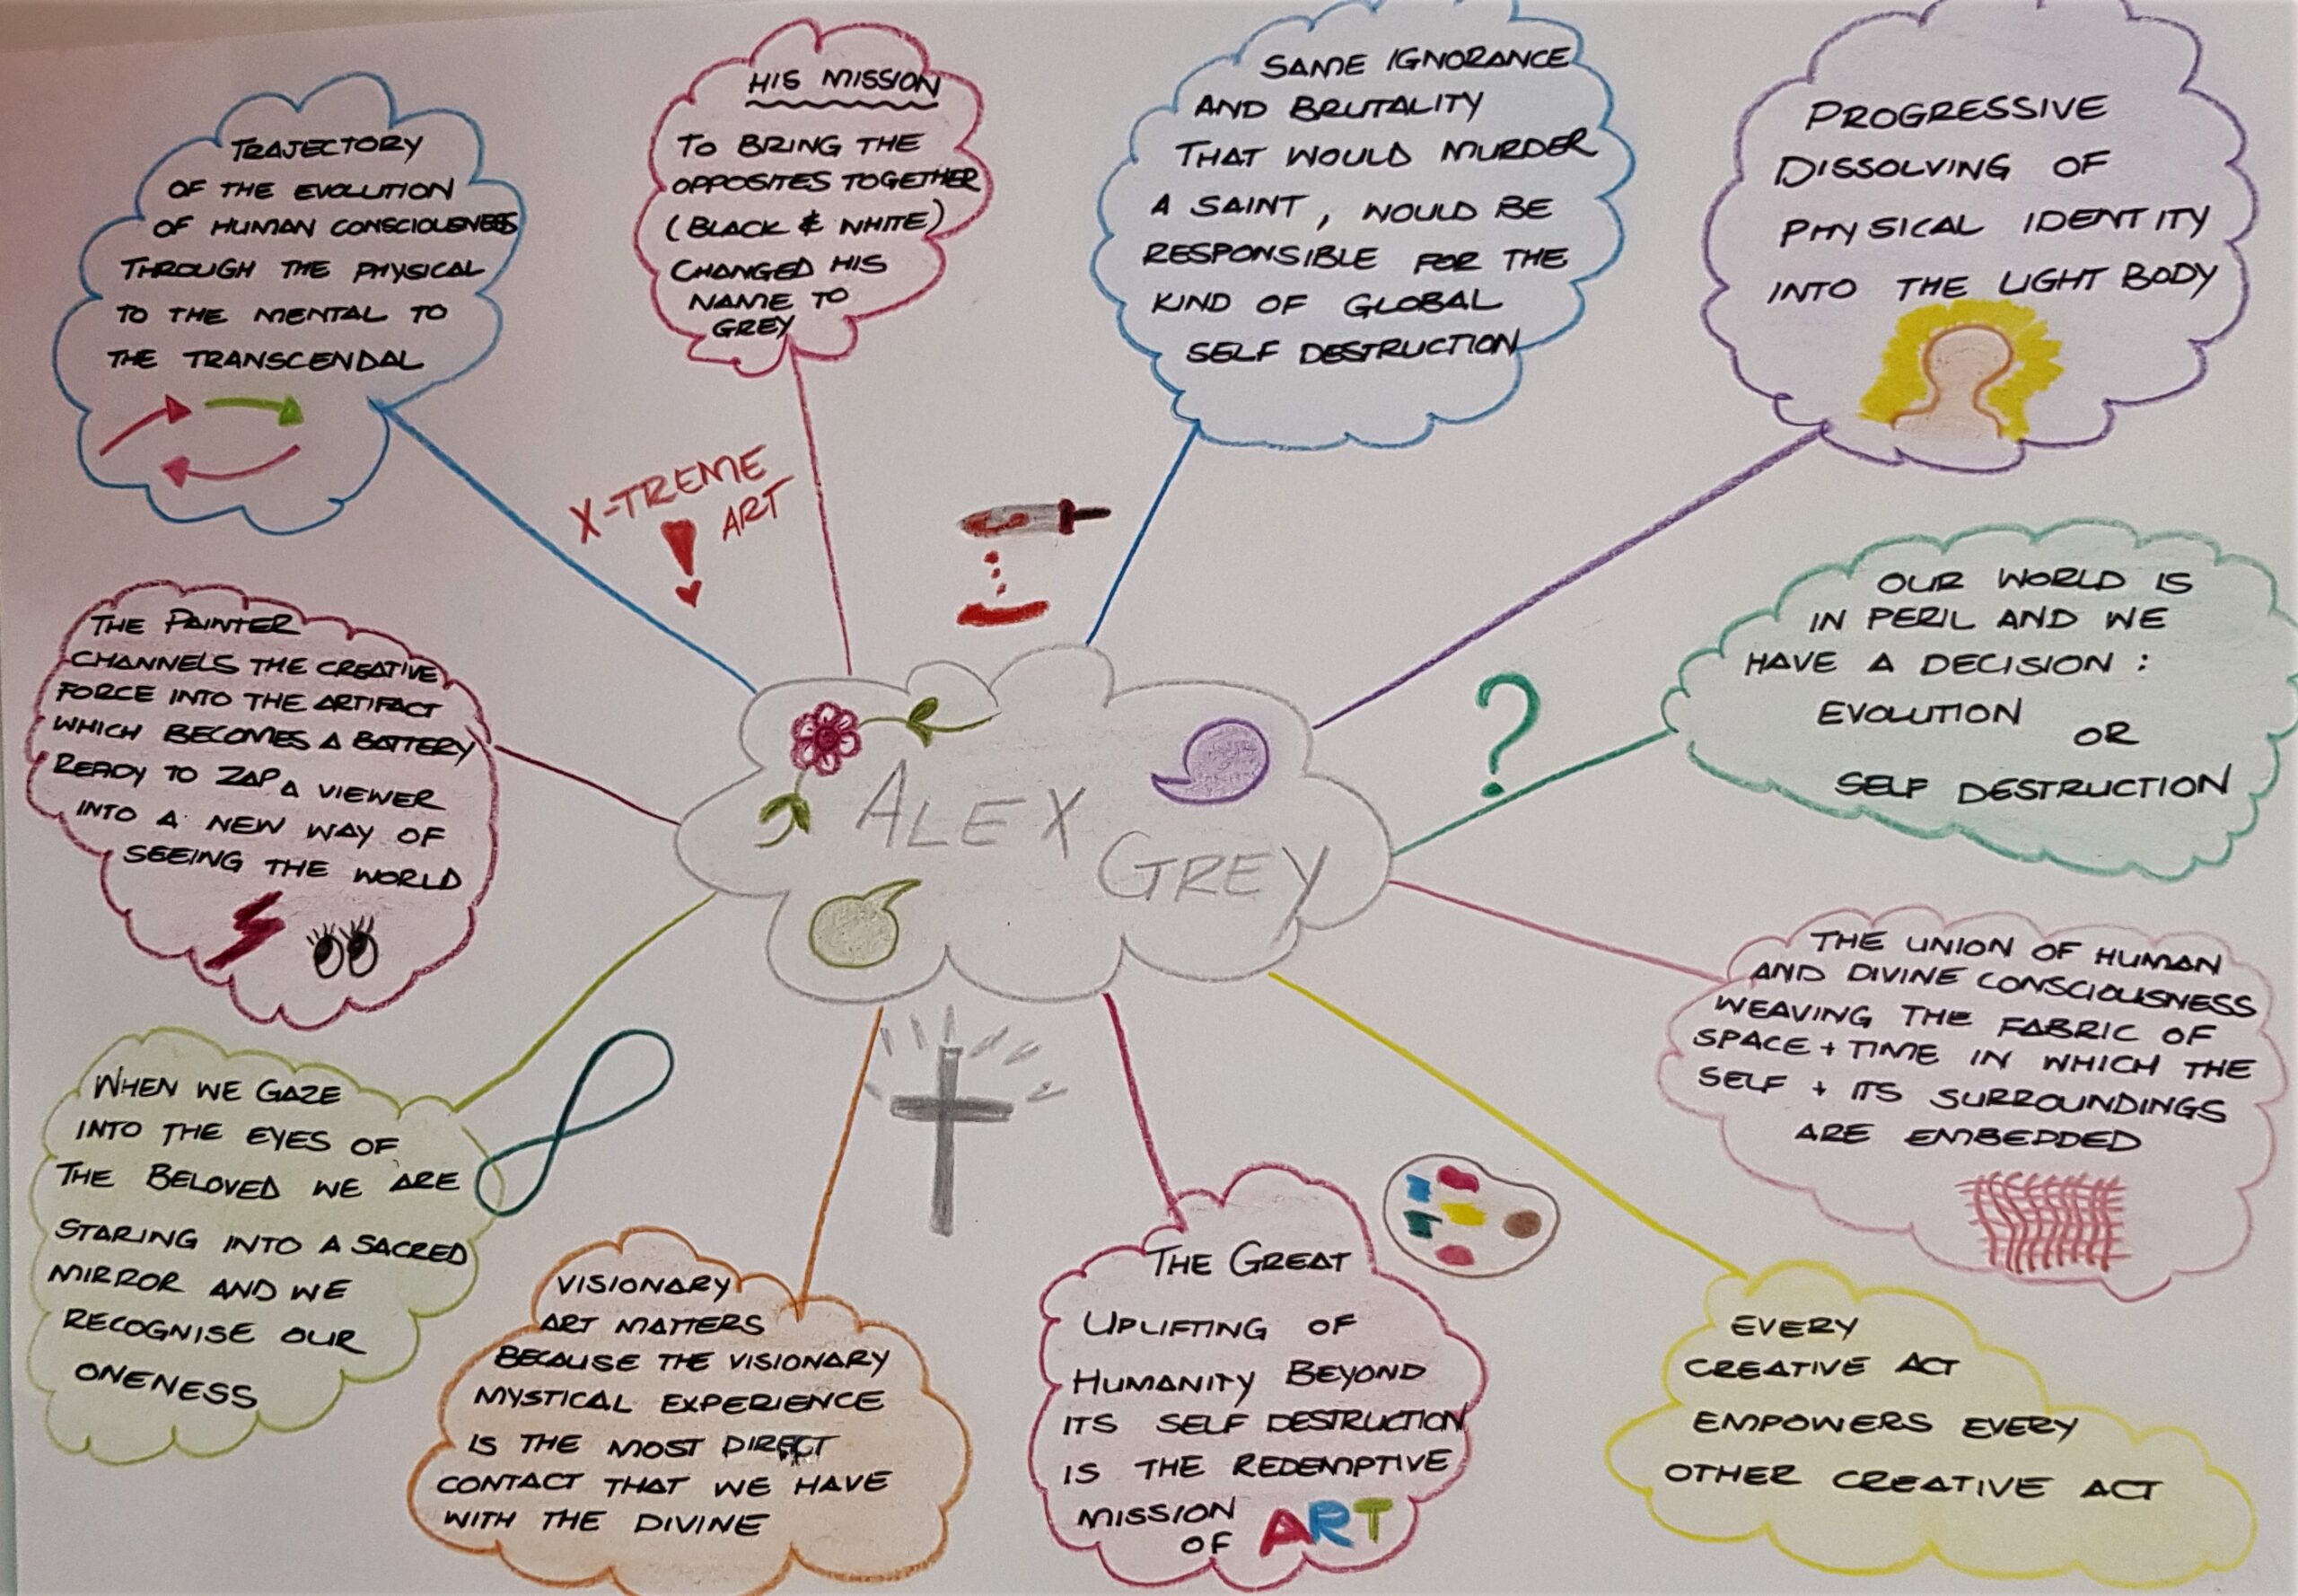 TRAJECTORY
OF THE EVOLUTION
OF HUMAN CONSCIOUSNESS
THROUGH THE PHYSICAL
TO THE MENTAL TO
THE TRANSCENDAL
HIS MISSION
TO BRING THE
OPPOSITES TOGETHER
(BLACK & WHITE)
CHANGED HIS
NAME TO
GREY
SAME IGNORANCE
AND BRUTALITY
THAT WOULD MURDER
A SAINT, WOULD BE
RESPONSIBLE FOR THE
KIND OF GLOBAL
SELF DESTRUCTION
PROGRESSIVE
DISSOLVING OF
PHYSICAL IDENTITY
INTO THE LIGHT BODY
X-TREME
ART
!
THE PAINTER
CHANNELS THE CREATIVE
FORCE INTO THE ARTIFACT
WHICH BECOMES A BATTERY
READY TO ZAP A VIEWER
INTO A NEW WAY OF
SEEING THE WORLD
ALEX
GREY
?
OUR WORLD IS
IN PERIL AND WE
HAVE A DECISION :
EVOLUTION
OR
SELF DESTRUCTION
THE UNION OF HUMAN
AND DIVINE CONSCIOUSNESS
WEAVING THE FABRIC OF
SPACE + TIME IN WHICH THE
SELF + ITS SURROUNDINGS
ARE EMBEDDED
WHEN WE GAZE
INTO THE EYES OF
THE BELOVED WE ARE
STARING INTO A SACRED
MIRROR AND WE
RECOGNISE OUR
ONENESS
VISIONARY
ART MATTERS
BECAUSE THE VISIONARY
MYSTICAL EXPERIENCE
IS THE MOST DIRECT
CONTACT THAT WE HAVE
WITH THE DIVINE
THE GREAT
UPLIFTING OF
HUMANITY BEYOND
ITS SELF DESTRUCTION
IS THE REDEMPTIVE
MISSION
OF ART
EVERY
CREATIVE ACT
EMPOWERS EVERY
OTHER CREATIVE ACT